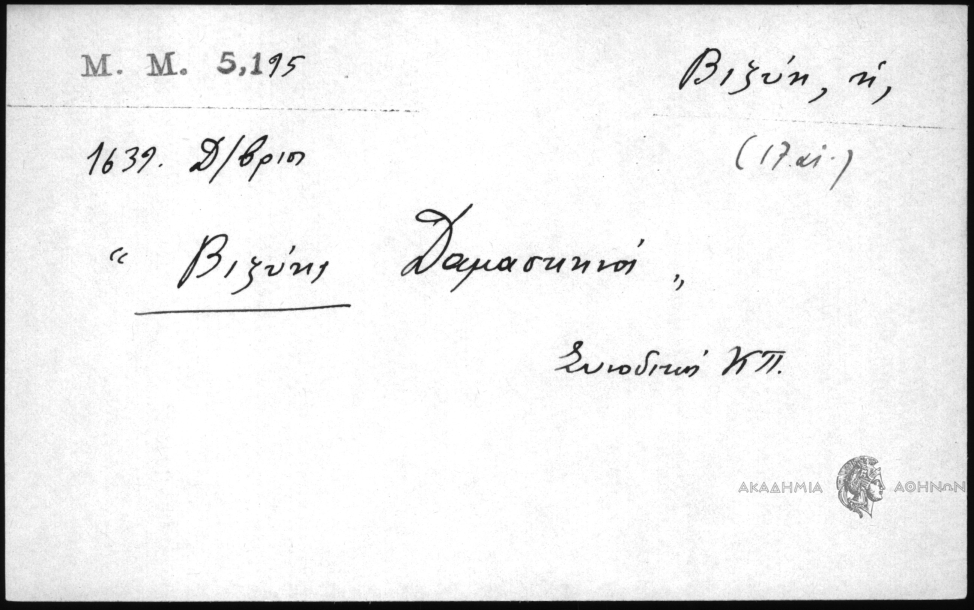 Μ. Μ. 5,195
Βιζύη, ἡ,
1639. Δ/βριος
(17 αἰ.)
“ Βιζύης Δαμασκηνός „
Συνοδικός ΚΠ.
ΑΚΑΔΗΜΙΑ ΑΘΗΝΩΝ